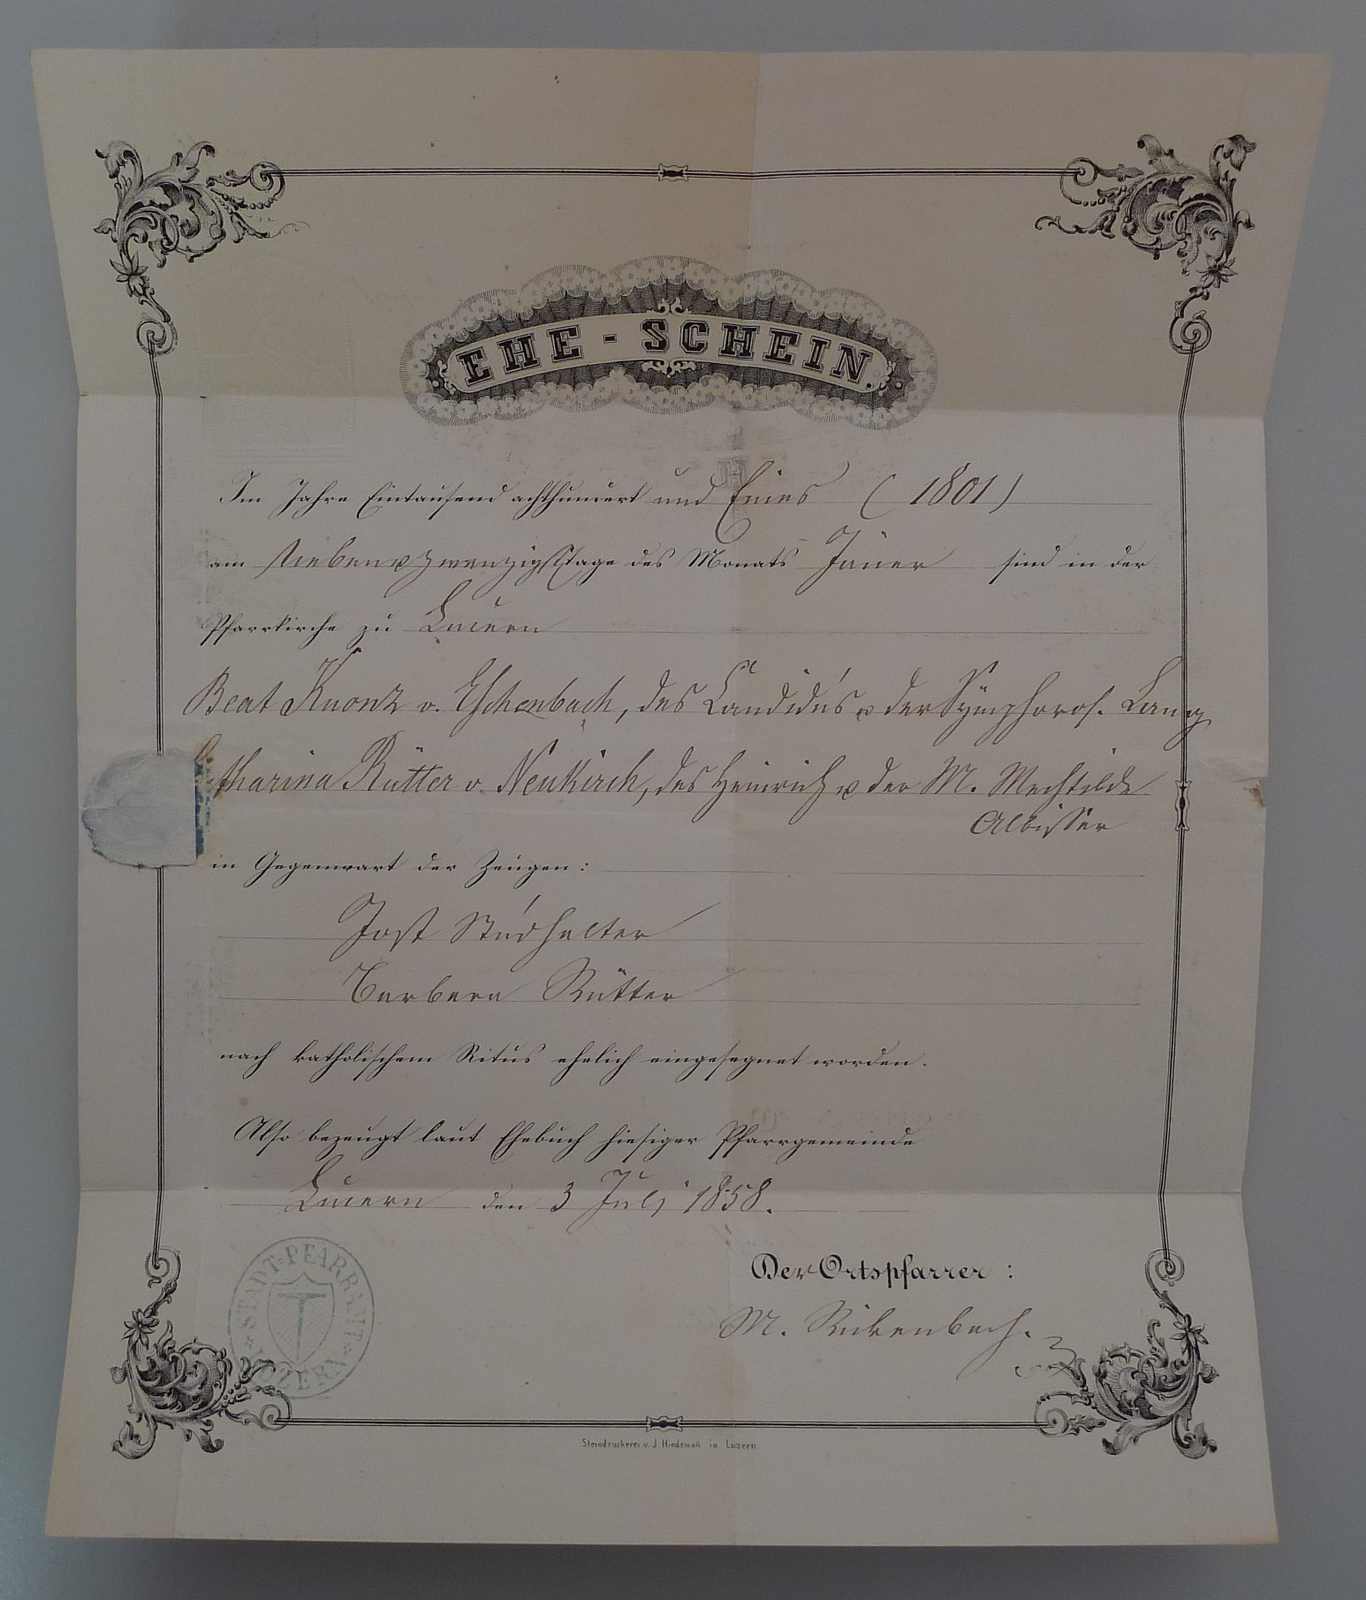 EHE - SCHEIN.
Im Jahre Eintausend achthundert und Eines (1801)
am sieben u zwanzigst Tage des Monats Jäner sind in der
Pfarrkirche zu Lucern
Beat Kuonz v. Eschenbach, des Candidus u der Symphoros. Lang
Catharina Rütter v. Neukirch, des Heinrich u der M. Mechtilde
Albisser
in Gegenwart der Zeugen:
Jost Studhalter
Barbara Rütter
nach katholischem Ritus ehelich eingesegnet worden.
Also bezeugt laut Ehebuch hiesiger Pfarrgemeinde
Lucern den 3 Julj 1858.
Der Ortspfarrer:
M. Rikenbach.
STADT-PFARRAMT LUZERN
Steindruckerei v. J. in Luzern